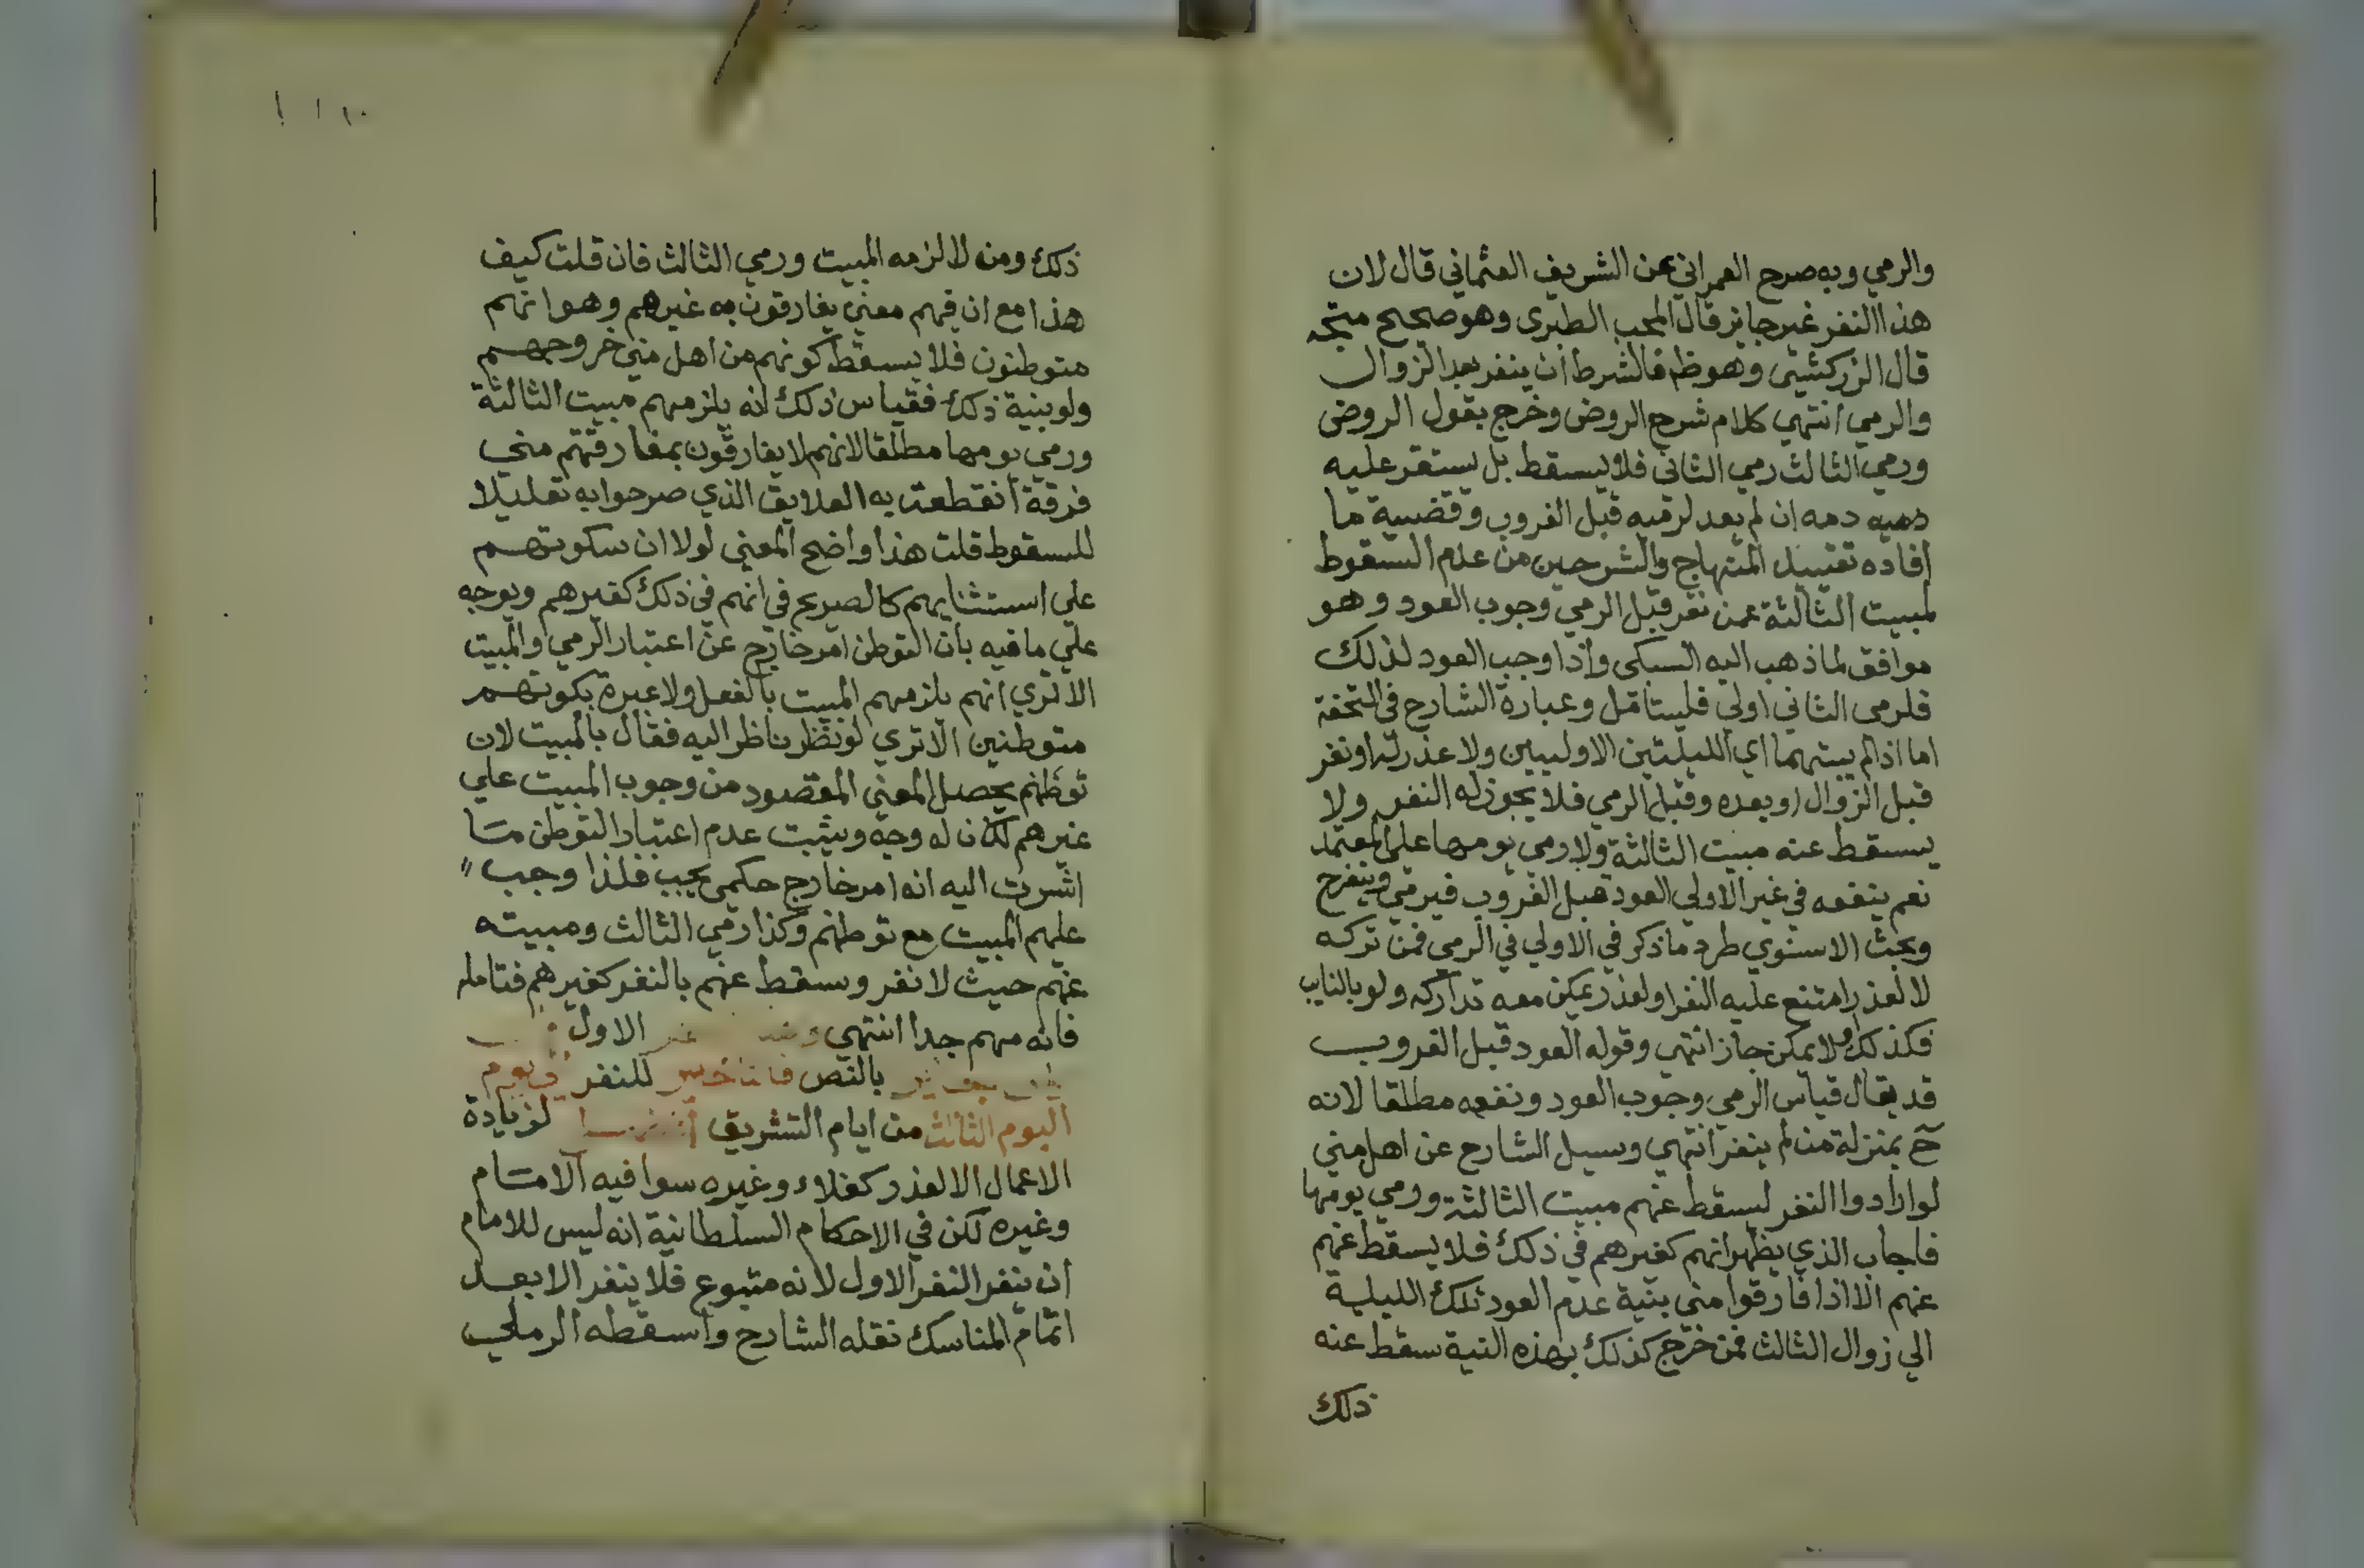 والرمي وبه صرح العمراني عن الشريف العثماني قال لان
هذا النفر غير جايز قال المحب الطبري وهو صحيح متجه
قال الزركشي وهو ظ فالشرط ان ينفر بعد الزوال
والرمي انتهي كلام شرح الروض وخرج بقول الروض
ورمي الثالث رمي الثاني فلا يسقط بل يستقر عليه
دمه ان لم يعد لرميه قبل الغروب وقضية ما
افاده تقييد المنهاج والشرحين من عدم السقوط
لمبيت الثالثة عمن نفر قبل الرمي وجوب العود وهو
موافق لما ذهب اليه السبكي واذا وجب العود لذلك
فلرمي الثاني اولي فليتامل وعبارة الشارح في التحفة
اما اذا لم يبتهما اي الليلتين الاوليين ولا عذر له او نفر
قبل الزوال او بعده وقبل الرمي فلا يجوز له النفر ولا
يسقط عنه مبيت الثالثة ولا رمي يومها علي المعتمد
نعم ينفعه في غير الاولي العود قبل الغروب فيرمي وينفر ح
وبحث الاسنوي طرد ما ذكر في الاولي في الرمي فمن تركه
لا لعذر امتنع عليه النفر او لعذر يمكن معه تداركه ولو بالنايب
فكذلك او لا يمكن جاز انتهي وقوله العود قبل الغروب
قد يقال قياس الرمي وجوب العود ونفعه مطلقا لانه
ح بمنزلة من لم ينفر انتهي وسيل الشارح عن اهل مني
لو ارادوا النفر ليسقط عنهم مبيت الثالثة ورمي يومها
فاجاب الذي يظهر انهم كغيرهم في ذلك فلا يسقط عنهم
عنهم الا اذا فارقوا مني بنية عدم العود تلك الليلة
الي زوال الثالث فمن خرج كذلك بهذه النية سقط عنه
ذلك
ذلك ومن لا لزمه المبيت ورمي الثالث فان قلت كيف
هذا مع ان فيهم معني يفارقون به غيرهم وهو انهم
متوطنون فلا يسقط كونهم من اهل مني خروجهم
ولو بنية ذلك فقياس ذلك انه يلزمهم مبيت الثالثة
ورمي يومها مطلقا لانهم لا يفارقون بمفارقتهم مني
فرقة انقطعت به العلايق الذي صرحوا به تعليلا
للسقوط قلت هذا واضح المعني لولا ان سكوتهم
علي استثنايهم كالصريح في انهم في ذلك كغيرهم ويوجه
علي ما فيه بان التوطن امر خارج عن اعتبار الرمي والمبيت
الا تري انهم يلزمهم المبيت بالفعل ولا عبرة بكونهم
متوطنين الا تري لو نظر ناظر اليه فقال بالمبيت لان
توطنهم يحصل المعني المقصود من وجوب المبيت علي
غيرهم لكان له وجه ويثبت عدم اعتبار التوطن ما
اشرت اليه انه امر خارج حكمي يجب فلذا وجب
عليهم المبيت مع توطنهم وكذا رمي الثالث ومبيته
عنهم حيث لا نفر وسقط عنهم بالنفر كغيرهم فتامله
فانه مهم جدا انتهي الاول
بالنص للنفر
اليوم الثالث من ايام التشريق لزيادة
الاعمال الا لعذر كغلاء وغيره سوا فيه الامام
وغيره لكن في الاحكام السلطانية انه ليس للامام
ان ينفر النفر الاول لانه متبوع فلا ينفر الا بعد
اتمام المناسك نقله الشارح واسقطه الرملي